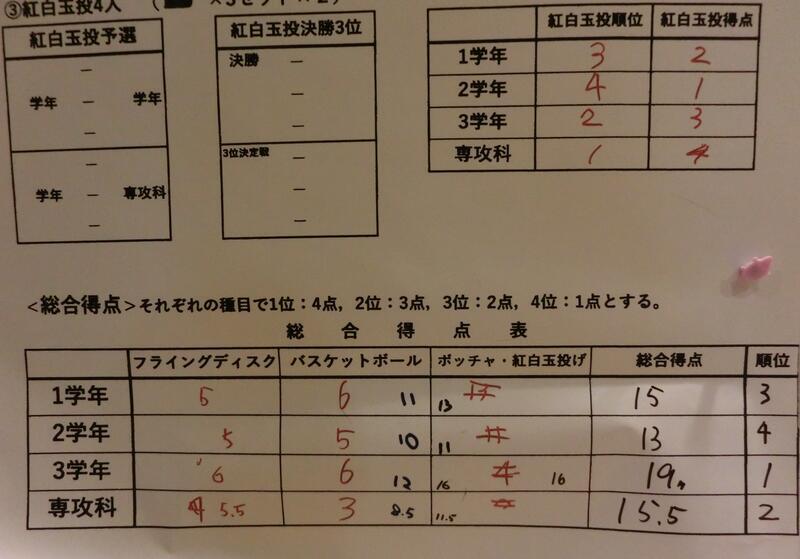 ③紅白玉投4人
紅白玉投予選
学年 － 学年
学年 － 専攻科
紅白玉投決勝3位
決勝
3位決定戦
紅白玉投順位 紅白玉投得点
1学年 3 2
2学年 4 1
3学年 2 3
専攻科 1 4
＜総合得点＞それぞれの種目で1位：4点，2位：3点，3位：2点，4位：1点とする。
総合得点表
フライングディスク バスケットボール ボッチャ・紅白玉投げ 総合得点 順位
1学年 5 6 11 13 15 3
2学年 5 5 10 11 13 4
3学年 6 6 12 16 16 19 1
専攻科 5.5 3 8.5 11.5 15.5 2